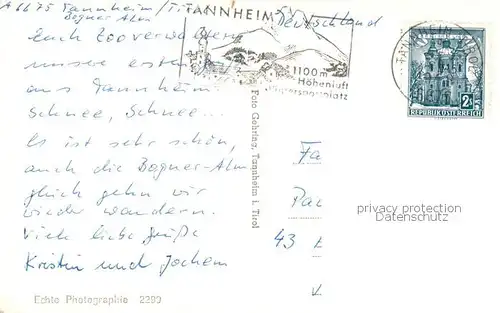 A 6675 Tannheim/Tirol
Bogner Alm
Deutschland
TANNHEIM
1100m
Höhenluft
Wintersportplatz
TANNHEIM
2S
REPUBLIK ÖSTERREICH
Euch
unsere ersten
aus Tannheim
Schnee, Schnee...
Es ist sehr schön,
auch die Bogner-Alm
gehn wir
wieder wandern.
Viele liebe Grüße
Kristin und Jochem
Echte Photographie 2292
Foto Gohring, Tannheim i. Tirol
43
privacy protection
Datenschutz